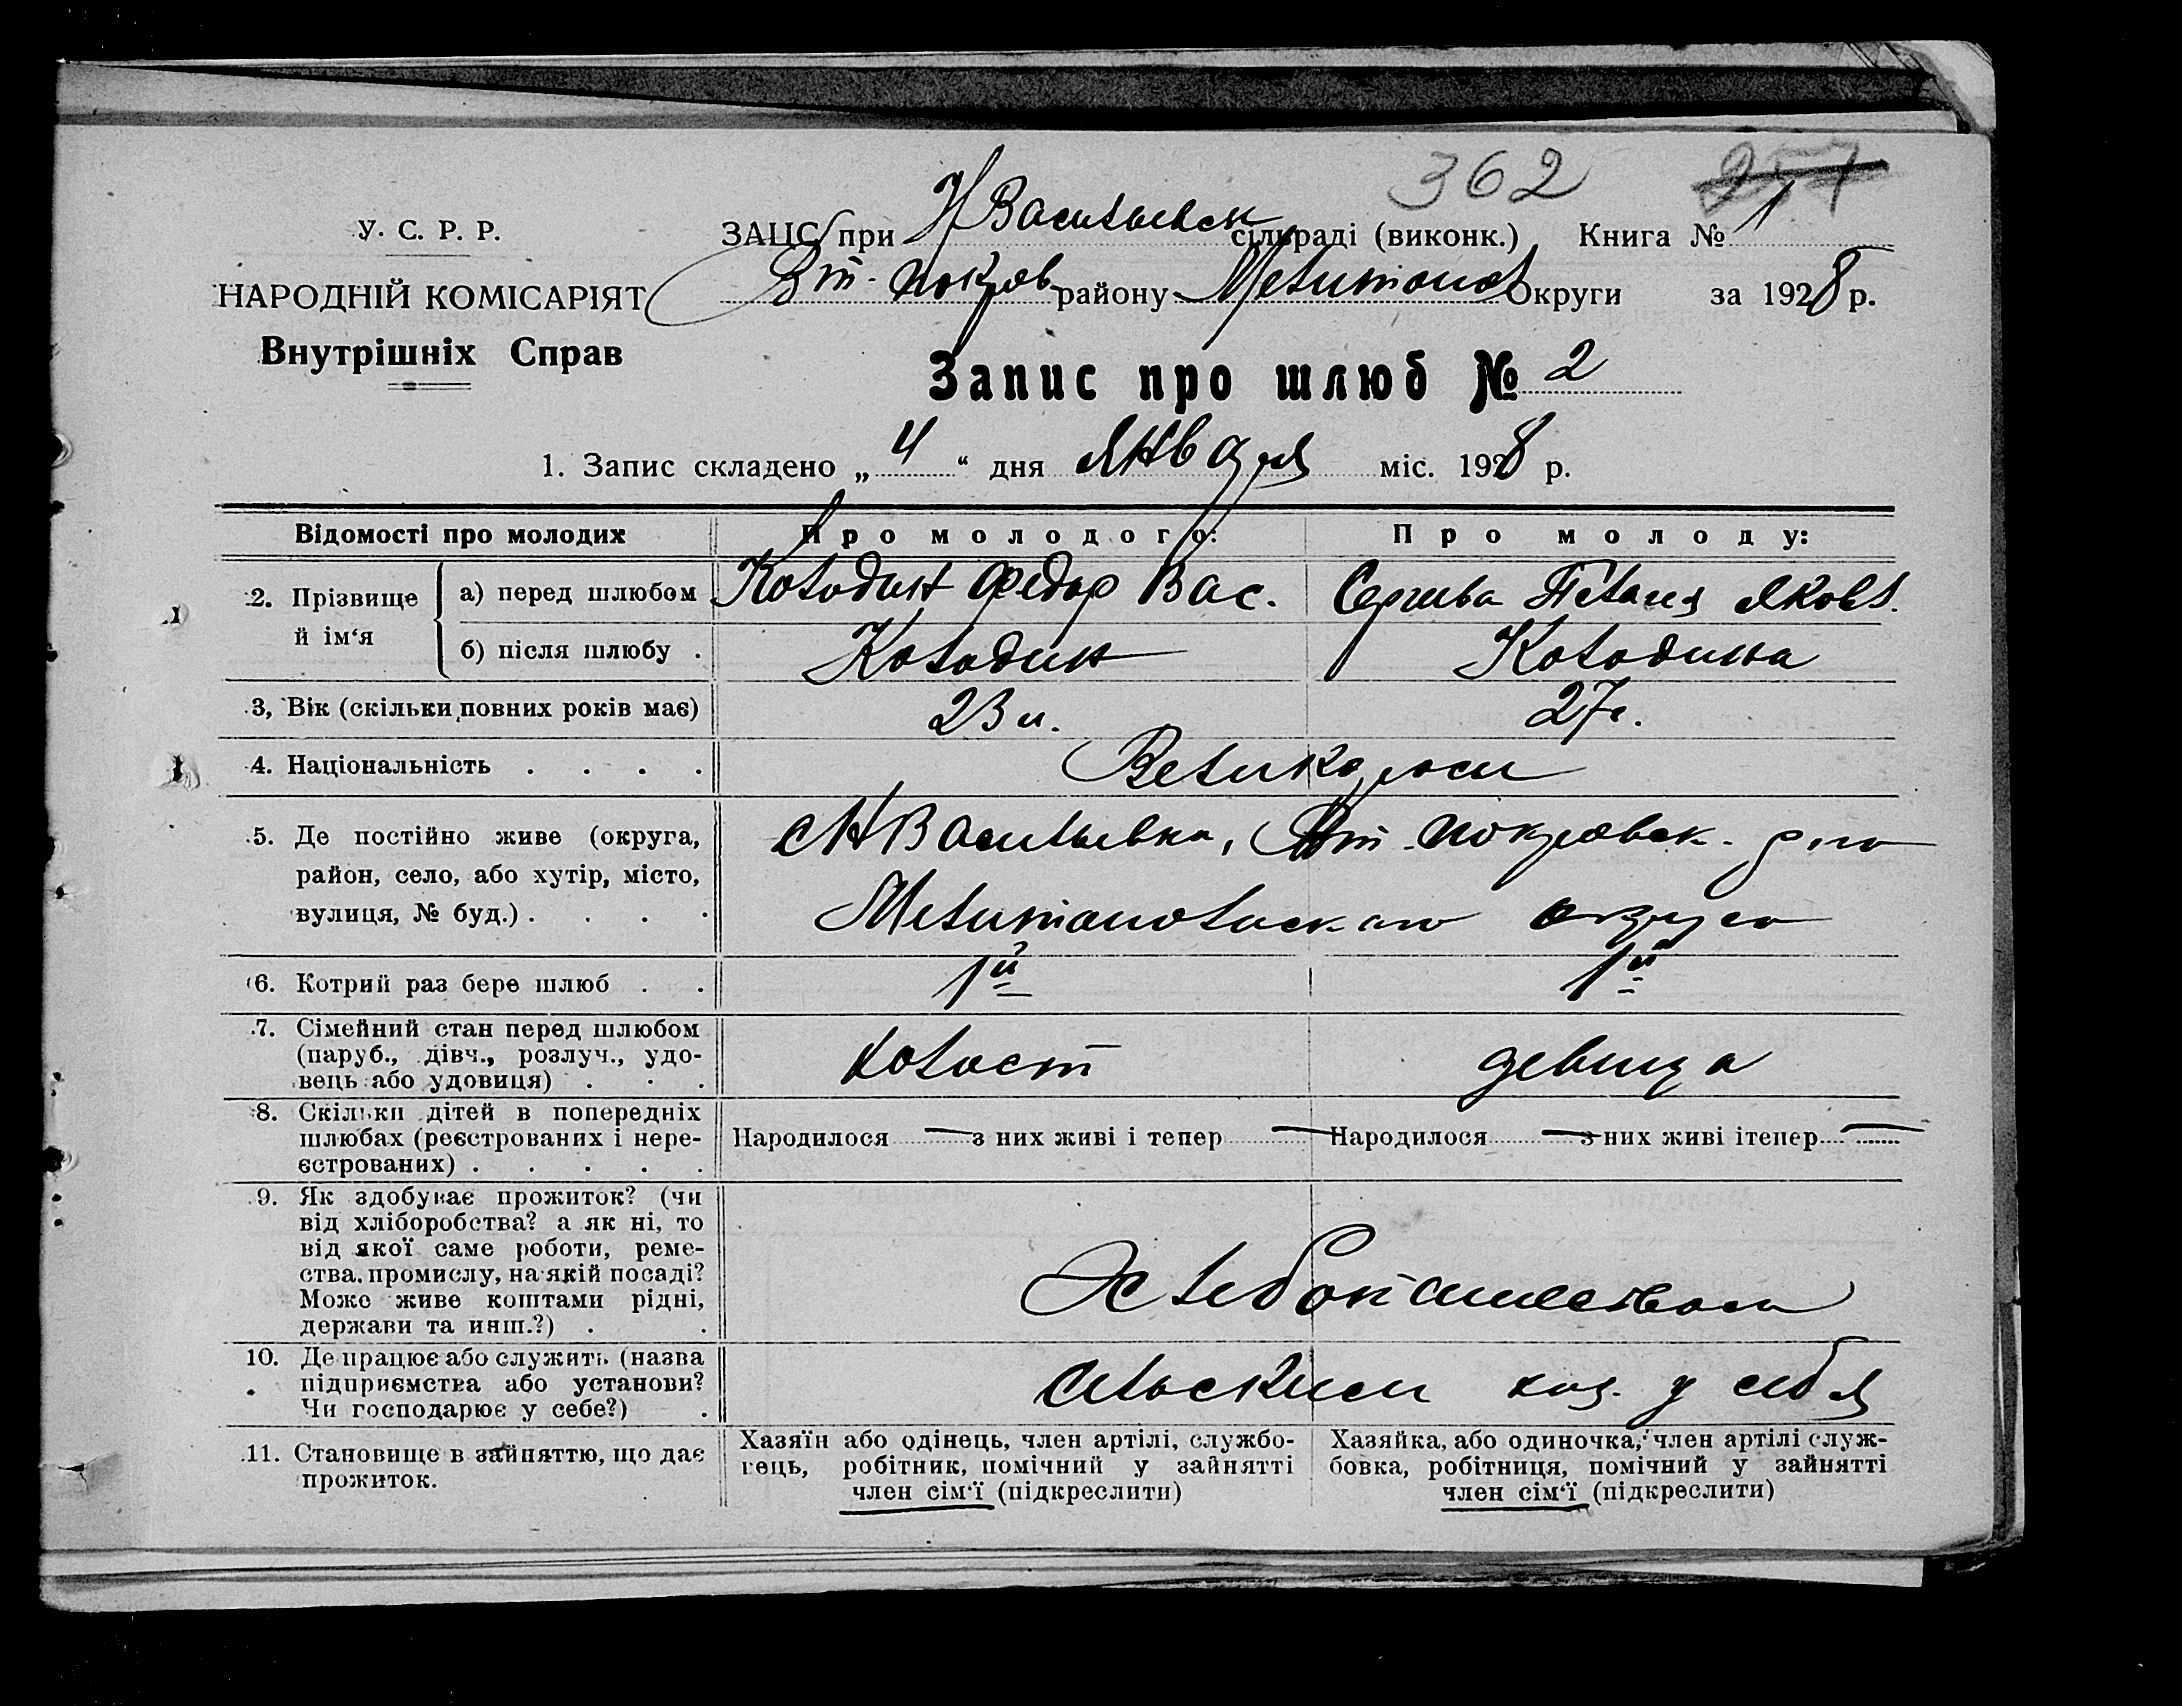 362 257
У. С. Р. Р.
ЗАЦС при Н Васильевск сільраді (виконк.) Книга № 1
НАРОДНІЙ КОМІСАРІЯТ
Вт-покров району Мелитопол Округи за 1928 р.
Внутрішніх Справ
Запис про шлюб № 2
1. Запис складено „ 4 “ дня Января міс. 1928 р.
Відомості про молодих
Про молодого:
Про молоду:
2. Прізвище й ім‘я
а) перед шлюбом
Колодин Федор Вас.
Яковл.
б) після шлюбу .
Колодин
Колодина
3, Вік (скільки повних років має)
23 л.
27 г.
4. Національність . . . .
Великороси
5. Де постійно живе (округа,
район, село, або хутір, місто,
вулиця, № буд.) . . . .
с Н Васильевка, Вт-покровск. р.на
Мелитопольского округа
6. Котрий раз бере шлюб . .
1й
1й
7. Сімейний стан перед шлюбом
(паруб., дівч., розлуч., удо-
вець або удовиця) . . .
холост
девица
8. Скільки дітей в попередніх
шлюбах (реєстрованих і нере-
єстрованих) . . . . .
Народилося — з них живі і тепер —
Народилося — з них живі ітепер —
9. Як здобуває прожиток? (чи
від хліборобства? а як ні, то
від якої саме роботи, реме-
ства, промислу, на якій посаді?
Може живе коштами рідні,
держави та инш.?) . .
Хлебопашеством
10. Де працює або служить (назва
підприємства або установи?
Чи господарює у себе?) .
сельским хоз. у себя
11. Становище в зайняттю, що дає
прожиток.
Хазяїн або одинець, член артілі, службо-
вець, робітник, помічний у зайнятті
член сім‘ї (підкреслити)
Хазяйка, або одиночка, член артілі служ-
бовка, робітниця, помічний у зайнятті
член сім‘ї (підкреслити)